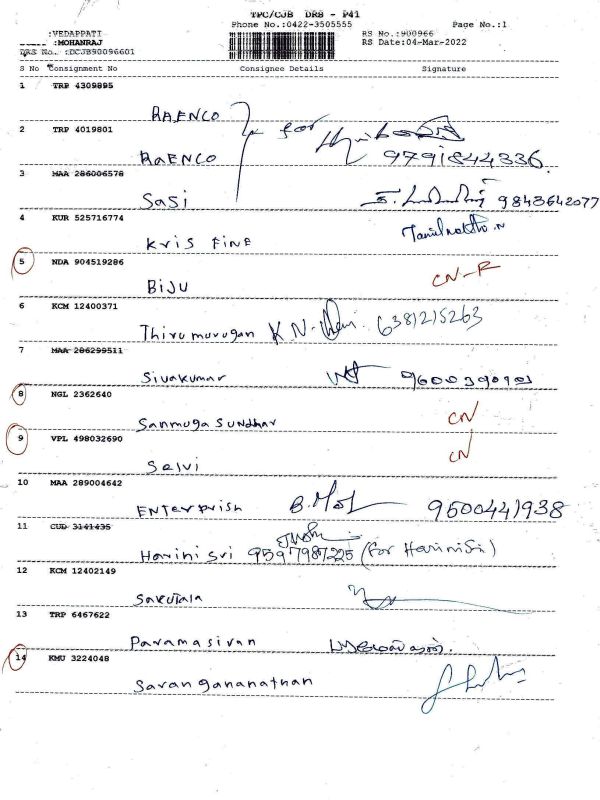 TPC/CJB DRS - P41
Phone No.:0422-3505555 Page No.:1
:VEDAPPATI RS No.:900966
:MOHANRAJ RS Date:04-Mar-2022
DRS No. :DCJB90096601
S No Consignment No Consignee Details Signature
1 TRP 4309895
RAENCO for
2 TRP 4019801
RAENCO 9791844336.
3 MAA 286006578
Sasi 9843642077
4 KUR 525716774
Kris Fine
5 NDA 904519286
BIJU CN-R
6 KCM 12400371
Thirumurugan K N. 6381215263
7 MAA 286299511
Sivakumar
8 NGL 2362640
Sanmuga Sundhar CN
9 VPL 498032690
Selvi CN
10 MAA 289004642
Enterprish 9500441938
11 CUD 3141435
Harini sri 9597987225 (for Harinisri)
12 KCM 12402149
Sakutala
13 TRP 6467622
Paramasivan
14 KMU 3224048
Sarangananathan